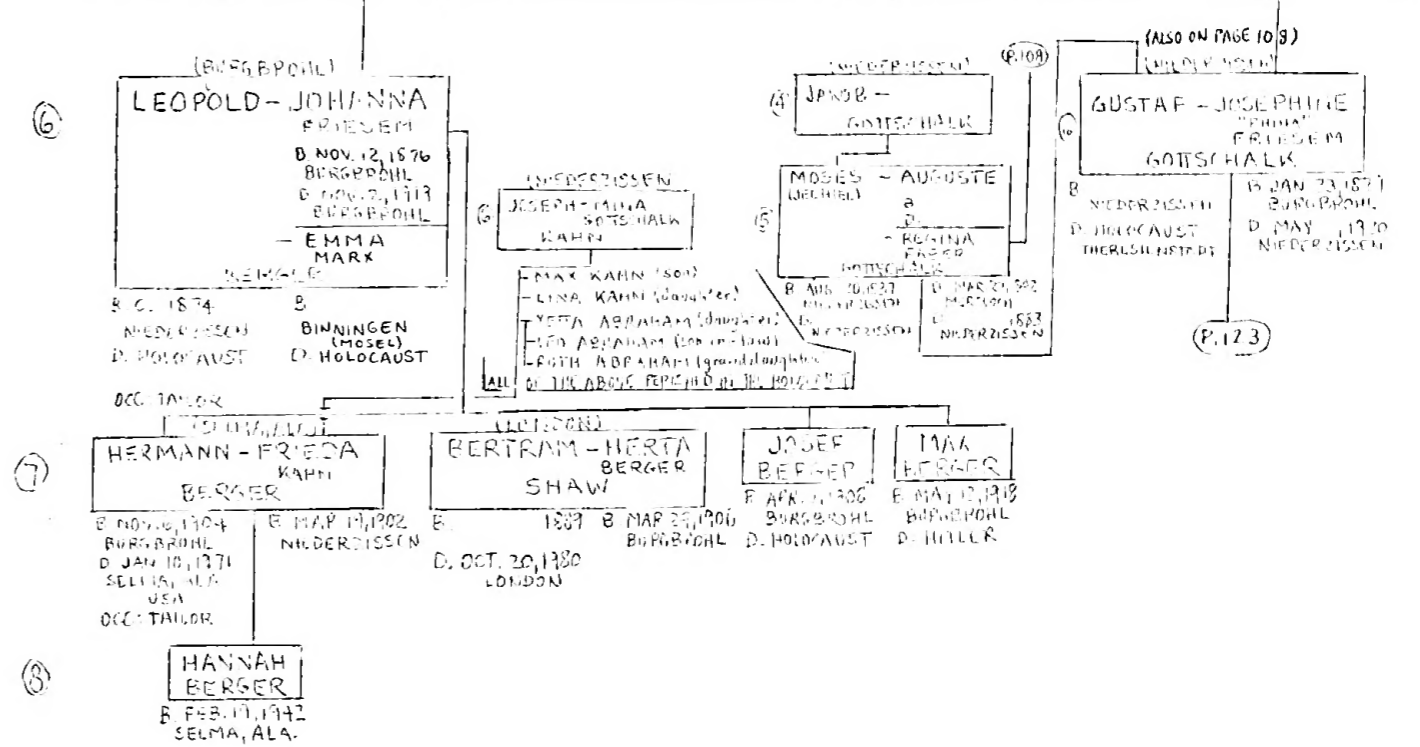 (ALSO ON PAGE 108)
(BURGBROHL)
(NIEDERZISSEN)
(P.109)
(NIEDERZISSEN)
6
LEOPOLD - JOHANNA
FRIESEM
B. NOV. 12, 1876
BURGBROHL
D. NOV. 2, 1913
BURGBROHL
- EMMA
MARX
B. C. 1874
NIEDERZISSEN
D. HOLOCAUST
B
BINNINGEN
(MOSEL)
D. HOLOCAUST
OCC: TAILOR
(NIEDERZISSEN
JOSEPH - MINA
GOTTSCHALK
KAHN
- MAX KAHN (son)
- LINA KAHN (daughter)
- YETTA ABRAHAM (daughter)
- LEO ABRAHAM (son-in-law)
- RUTH ABRAHAM (granddaughter
ALL
OF THE ABOVE PERISHED IN THE HOLOCAUST
JAKOB -
GOTTSCHALK
MOSES - AUGUSTE
(JECHIEL)
B
D.
- REGINA
GOTTSCHALK
NIEDERZISSEN
1883
NIEDERZISSEN
GUSTAF - JOSEPHINE
"PHINA"
FRIESEM
GOTTSCHALK
B
NIEDERZISSEN
D. HOLOCAUST
THERESIENSTADT
BURGBROHL
D. MAY
NIEDERZISSEN
(P.123)
7
HERMANN - FRIEDA
KAHN
BERGER
B. NOV. 6, 1904
BURGBROHL
D. JAN 10, 1971
SELMA, ALA
USA
OCC: TAILOR
B. MAR 19, 1902
NIEDERZISSEN
(LONDON)
BERTRAM - HERTA
BERGER
SHAW
B. 1889
D. OCT. 20, 1980
LONDON
B. MAR 29, 1906
BURGBROHL
JOSEF
BERGER
BURGBROHL
D. HOLOCAUST
MAX
BERGER
BURGBROHL
D. HITLER
8
HANNAH
BERGER
B. FEB. 19, 1942
SELMA, ALA.